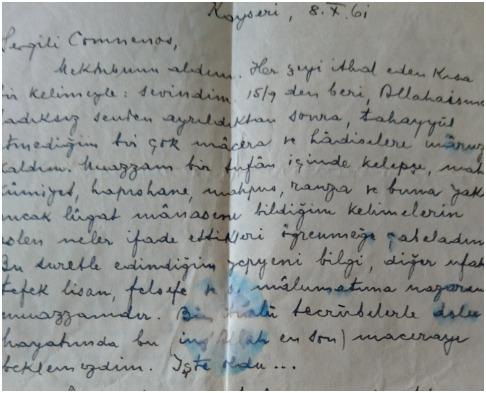 Kayseri, 8.X.61
Sevgili Comnenos,
Mektubunu aldım. Her şeyi ithal eden kısa
bir kelimeyle: sevindim. 15/9 den beri, Allahaısma
ladıksız senden ayrıldıktan sonra, tahayyül
etmediğim bir çok mâcera ve hâdiselere mâruz
kaldım. Muazzam bir tufân içinde kelepçe, mah
kûmiyet, hapishane, mahpus, ranza ve buna yakı
ancak lûgat mânasını bildiğim kelimelerin
neler ifade ettikleri öğrenmeğe çabaladım
Bu suretle edindiğim yepyeni bilgi, diğer ufak
tefek lisan, felsefe malumatıma nazaran
muazzamdır. tecrübelerle dolu
hayatımda bu (inşallah en son) macerayı
beklemezdim. İşte oldu...